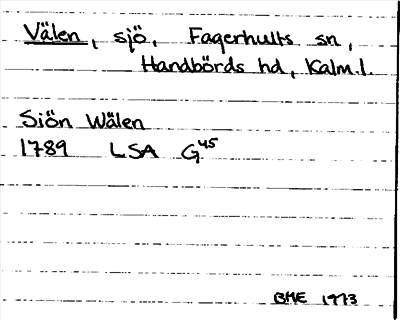 Välen, sjö, Fagerhults sn,
Handbörds hd, Kalm.l.
Siön Wälen
1789 LSA G45
BME 1973